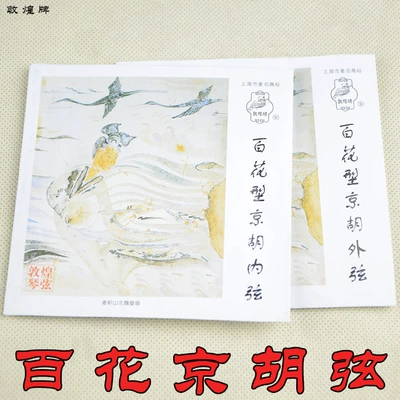 敦煌牌
上海市著名商标
敦煌牌
百花型京胡内弦
敦煌
琴弦
麦积山北魏壁画
上海市著名商标
敦煌牌
百花型京胡外弦
百花京胡弦